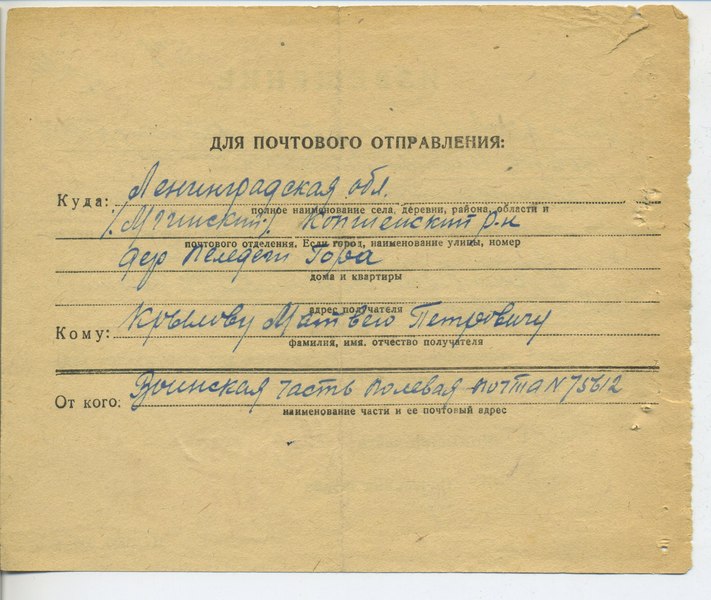 ДЛЯ ПОЧТОВОГО ОТПРАВЛЕНИЯ:
Куда: Ленинградская обл.
полное наименование села, деревни, района, области и
/Мгинский/ р-н
почтового отделения, Если город, наименование улицы, номер
дер Гора
дома и квартиры
адрес получателя
Кому: Крылову Матвею Петровичу
фамилия, имя, отчество получателя
От кого: Воинская часть полевая почта N 75612
наименование части и ее почтовый адрес